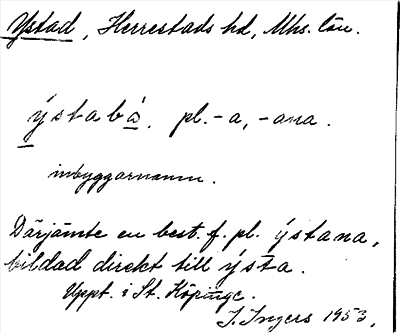 Ystad, Herrestads hd, Mhs. län.
ýstabå̀. pl. -a, -ana.
inbyggarnamn.
Därjämte en best. f. pl. ýstana,
bildad direkt till ýsta.
Uppt. i St. Köpinge.
I. Ingers 1953.